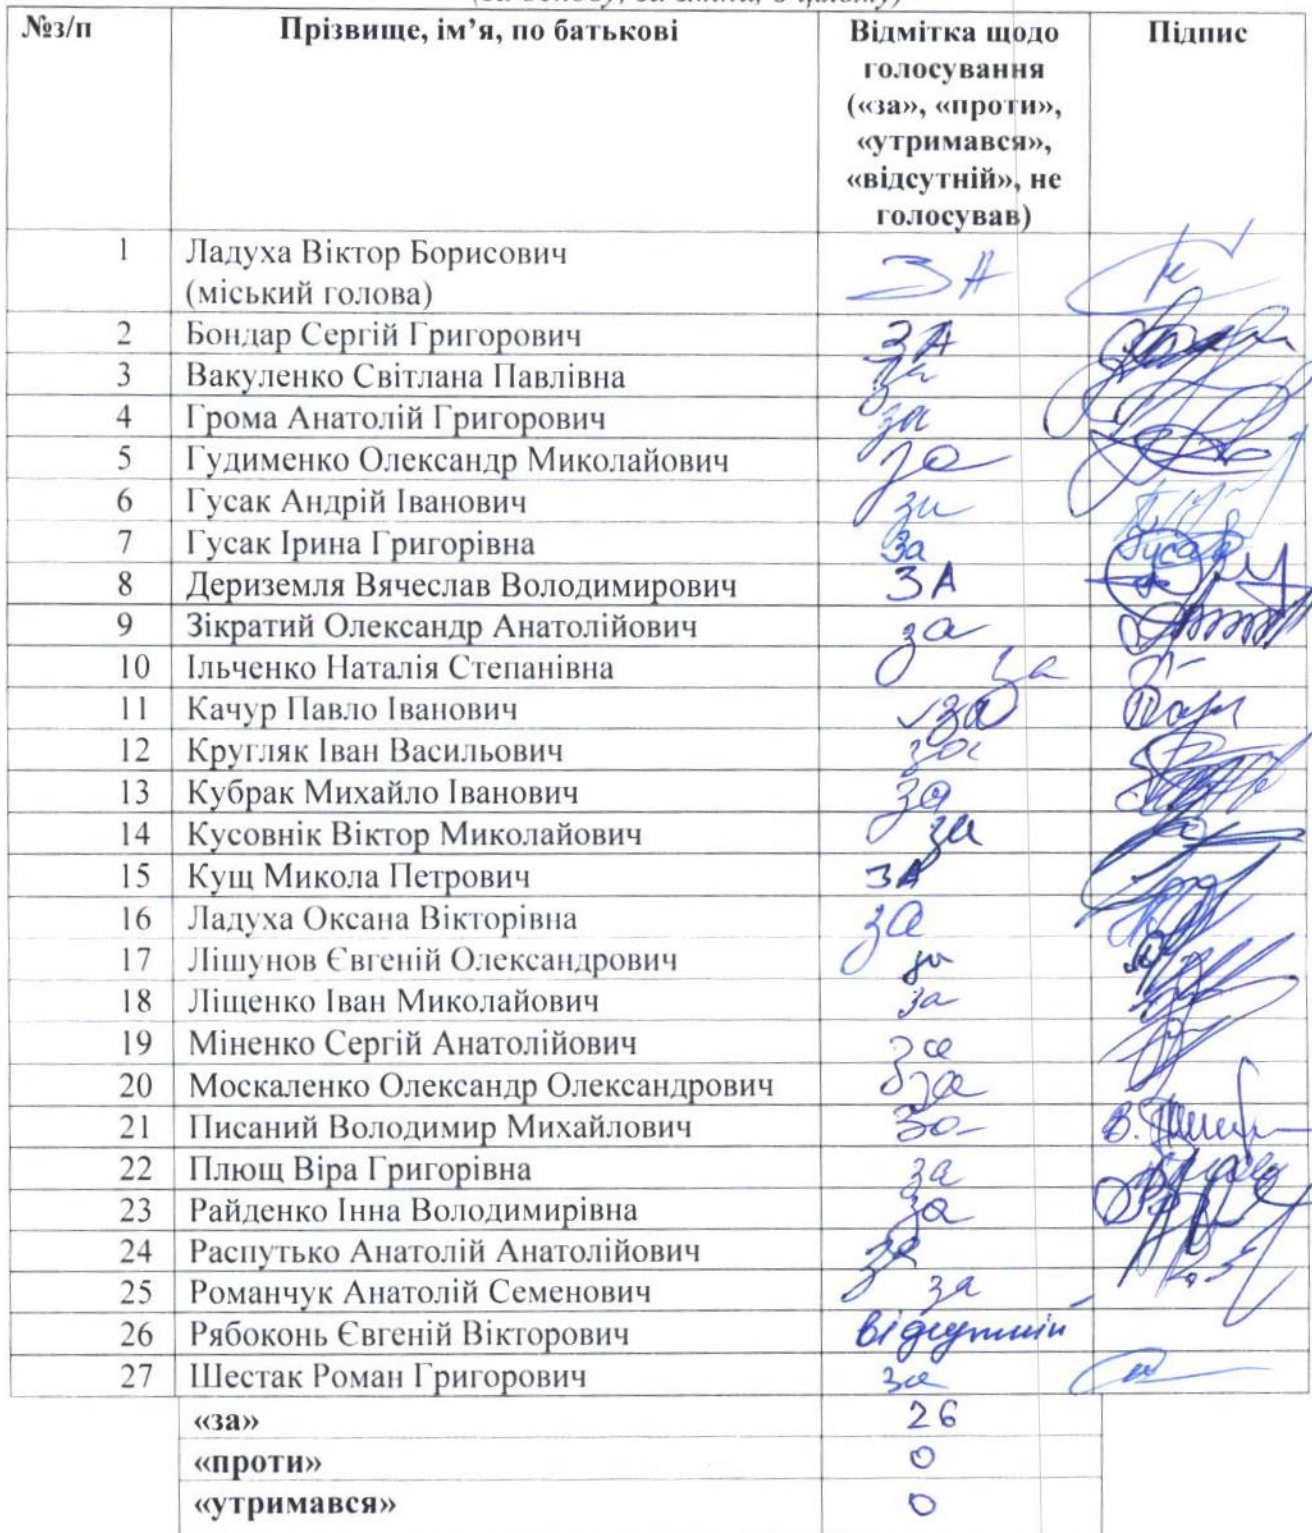 (за основу, за зміни, в цілому)
№з/п Прізвище, ім’я, по батькові Відмітка щодо голосування («за», «проти», «утримався», «відсутній», не голосував) Підпис
1 Ладуха Віктор Борисович (міський голова) ЗА
2 Бондар Сергій Григорович ЗА
3 Вакуленко Світлана Павлівна за
4 Грома Анатолій Григорович за
5 Гудименко Олександр Миколайович за
6 Гусак Андрій Іванович за
7 Гусак Ірина Григорівна За
8 Дериземля Вячеслав Володимирович ЗА
9 Зікратий Олександр Анатолійович за
10 Ільченко Наталія Степанівна за
11 Качур Павло Іванович за
12 Кругляк Іван Васильович за
13 Кубрак Михайло Іванович за
14 Кусовнік Віктор Миколайович за
15 Кущ Микола Петрович ЗА
16 Ладуха Оксана Вікторівна за
17 Лішунов Євгеній Олександрович за
18 Ліщенко Іван Миколайович за
19 Міненко Сергій Анатолійович за
20 Москаленко Олександр Олександрович за
21 Писаний Володимир Михайлович За
22 Плющ Віра Григорівна за
23 Райденко Інна Володимирівна за
24 Распутько Анатолій Анатолійович за
25 Романчук Анатолій Семенович за
26 Рябоконь Євгеній Вікторович відсутній
27 Шестак Роман Григорович за
«за» 26
«проти» 0
«утримався» 0